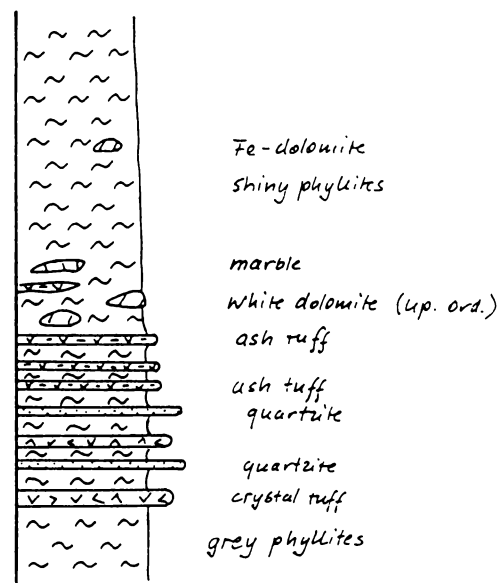 Fe-dolomite
shiny phyllites
marble
white dolomite (up. ord.)
ash tuff
ash tuff
quartzite
quartzite
crystal tuff
grey phyllites